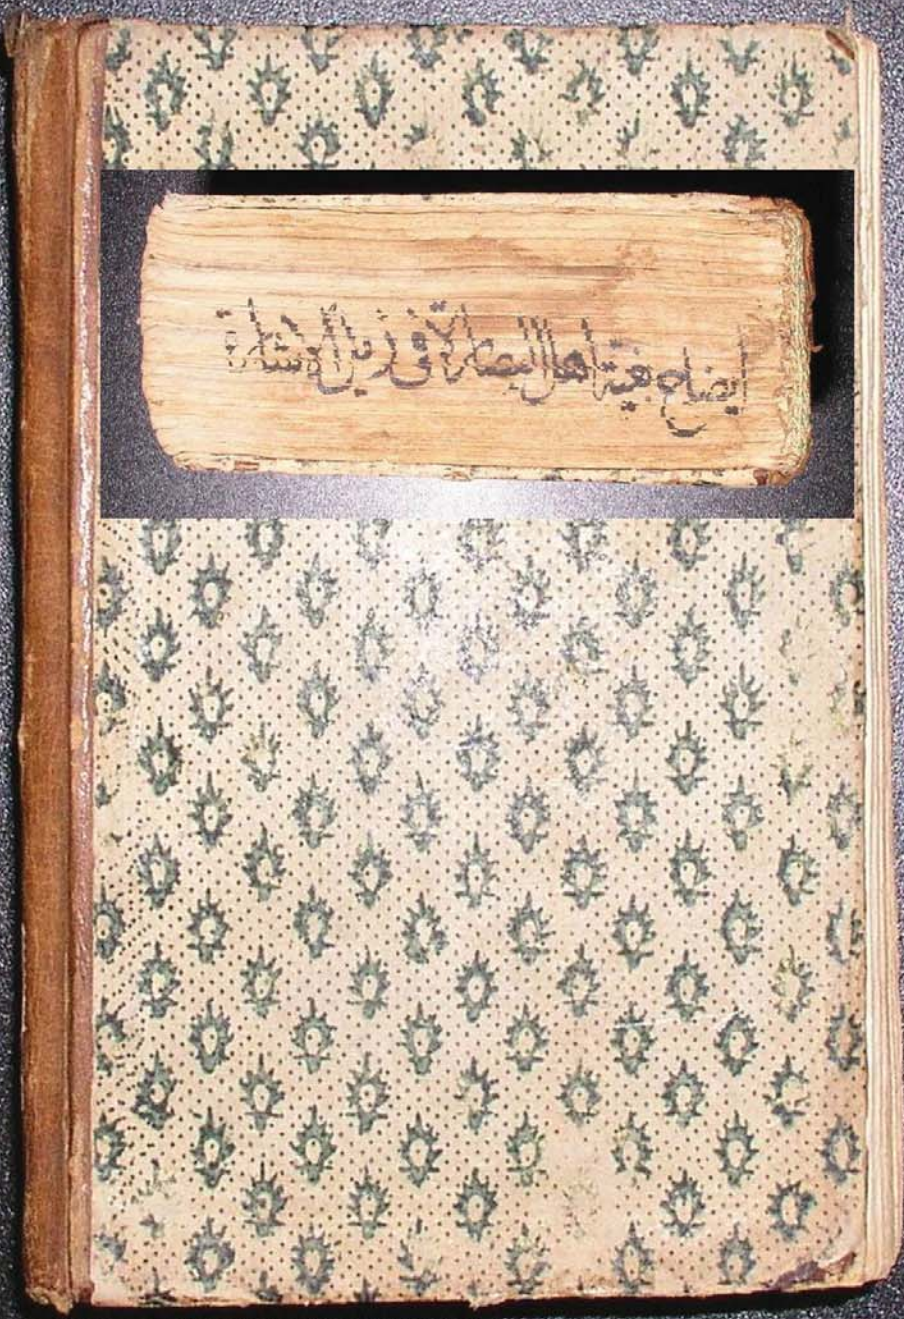 ايضاح بغية اهل البصارة في ذيل الاشارة